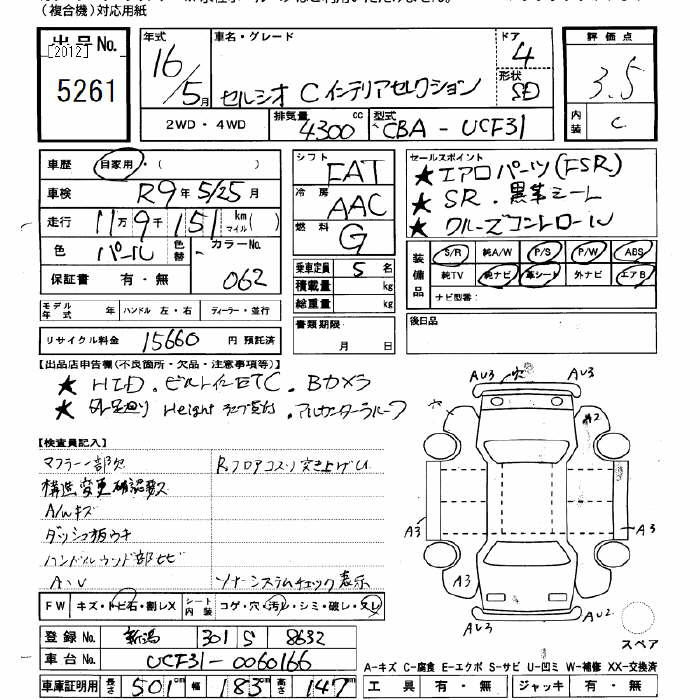 (複合機)対応用紙
出品No. 年式 車名・グレード ドア 評価点
[2012] 16/5月 セルシオ C インテリアセレクション 4 3.5
5261 形状 SD
2WD・4WD 排気量 4300cc 型式 CBA-UCF31 内装 C
車歴 自家用・( )
車検 R9年5/25月
走行 11万9千151km マイル( )
色 パール 色替 カラーNo. 062
保証書 有・無
シフト FAT
冷房 AAC
燃料 G
乗車定員 5名
積載量 kg
総重量 kg
書類期限 月 日
セールスポイント
★エアロパーツ(FSR)
★SR.黒革シート
★クルーズコントロール
装備品 S/R 純A/W P/S P/W ABS
純TV 純ナビ 革シート 外ナビ エアB
ナビ型番:
後日品
モデル年式 年 ハンドル 左・右 ディーラー・並行
リサイクル料金 15660 円 預託済
【出品店申告欄(不良箇所・欠品・注意事項等)】
★HID.ビルトインETC.Bカメラ
【検査員記入】
マフラー一部欠
構造変更確認
A/Wキズ
ダッシュ板ウキ
ハンドルウッド部ヒビ
A・U
Rフロアコスリ突き上げU
ソナーシステムチェック表示
AU3 AU3
A2
A3 A3
A3 A3
AU3 AU2
スペア
FW キズ・トビ石・割レX シート内装 コゲ・穴・汚レ・シミ・破レ・スレ
登録No. 新潟 301 S 8632
車台No. UCF31-0060166
車庫証明用 長さ 501cm 幅 183cm 高さ 147cm
A-キズ C-腐食 E-エクボ S-サビ U-凹ミ W-補修 XX-交換済
工具 有・無 ジャッキ 有・無